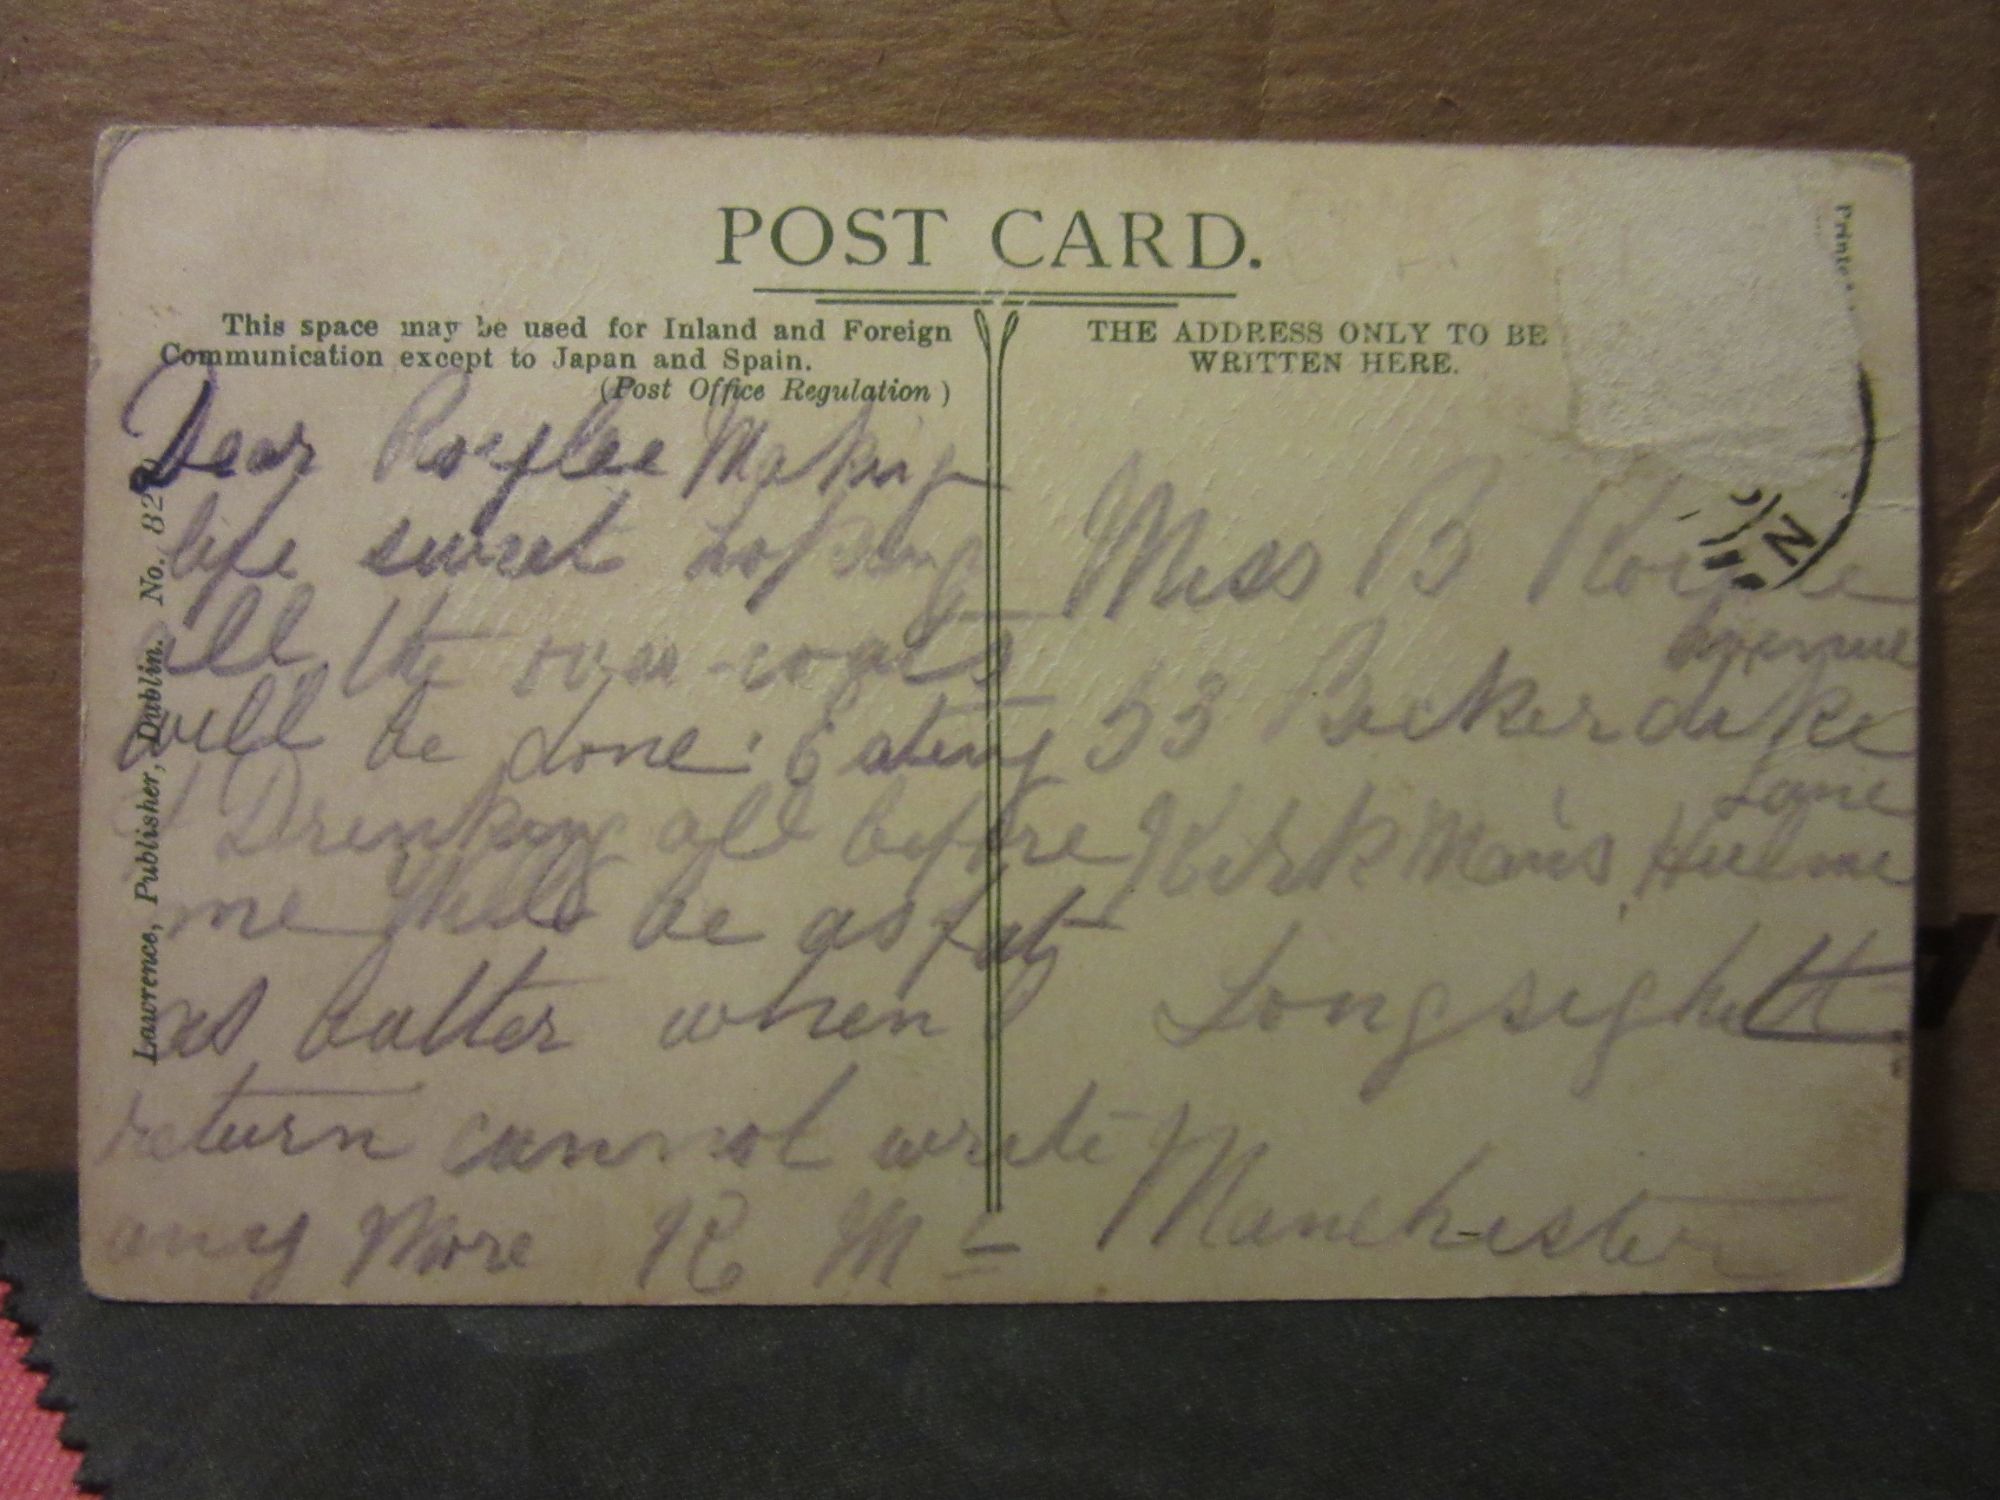 POST CARD.
This space may be used for Inland and Foreign
Communication except to Japan and Spain.
(Post Office Regulation)
THE ADDRESS ONLY TO BE
WRITTEN HERE.
Lawrence, Publisher, Dublin. No. 82
Printe
N
Dear Making
life sweet hoping
all the over-coats
will be done: Eating
& Drinking all before
me Will be as fat
as butter when
return cannot write
any More K Mc
Miss B
Avenue
53 Beckerdike
Lane
Kirk Man's Hulme
Longsight
Manchester